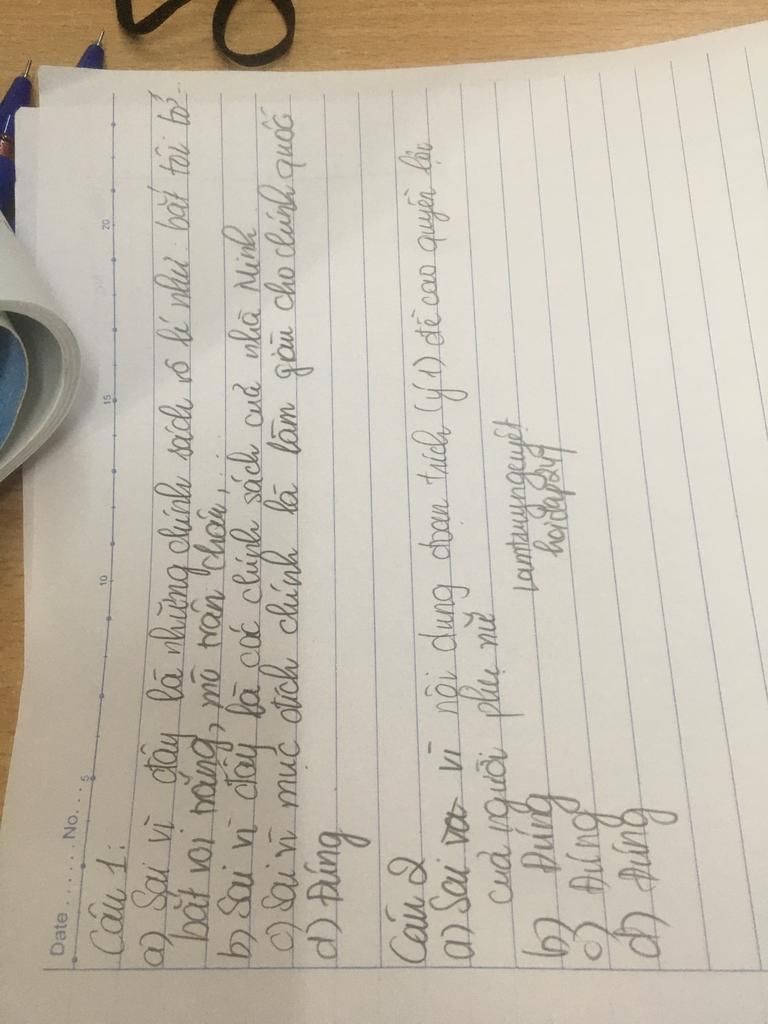 Date ....... No. ....
5 10 15 20
Câu 1:
a) Sai vì đây là những chính sách vô lí như bắt tôi bở...
bắt voi trắng, mò trân châu,...
b) Sai vì đây là các chính sách cuả nhà Minh
c) Sai vì mục đích chính là làm giàu cho chính quốc
d) Đúng
Câu 2
a) Sai vì nội dung đoạn trích (ý 1) đề cao quyền lợi
cuả người phụ nữ
b) Đúng
lamtuuynguyet
hoidap247
c) Đúng
d) Đúng